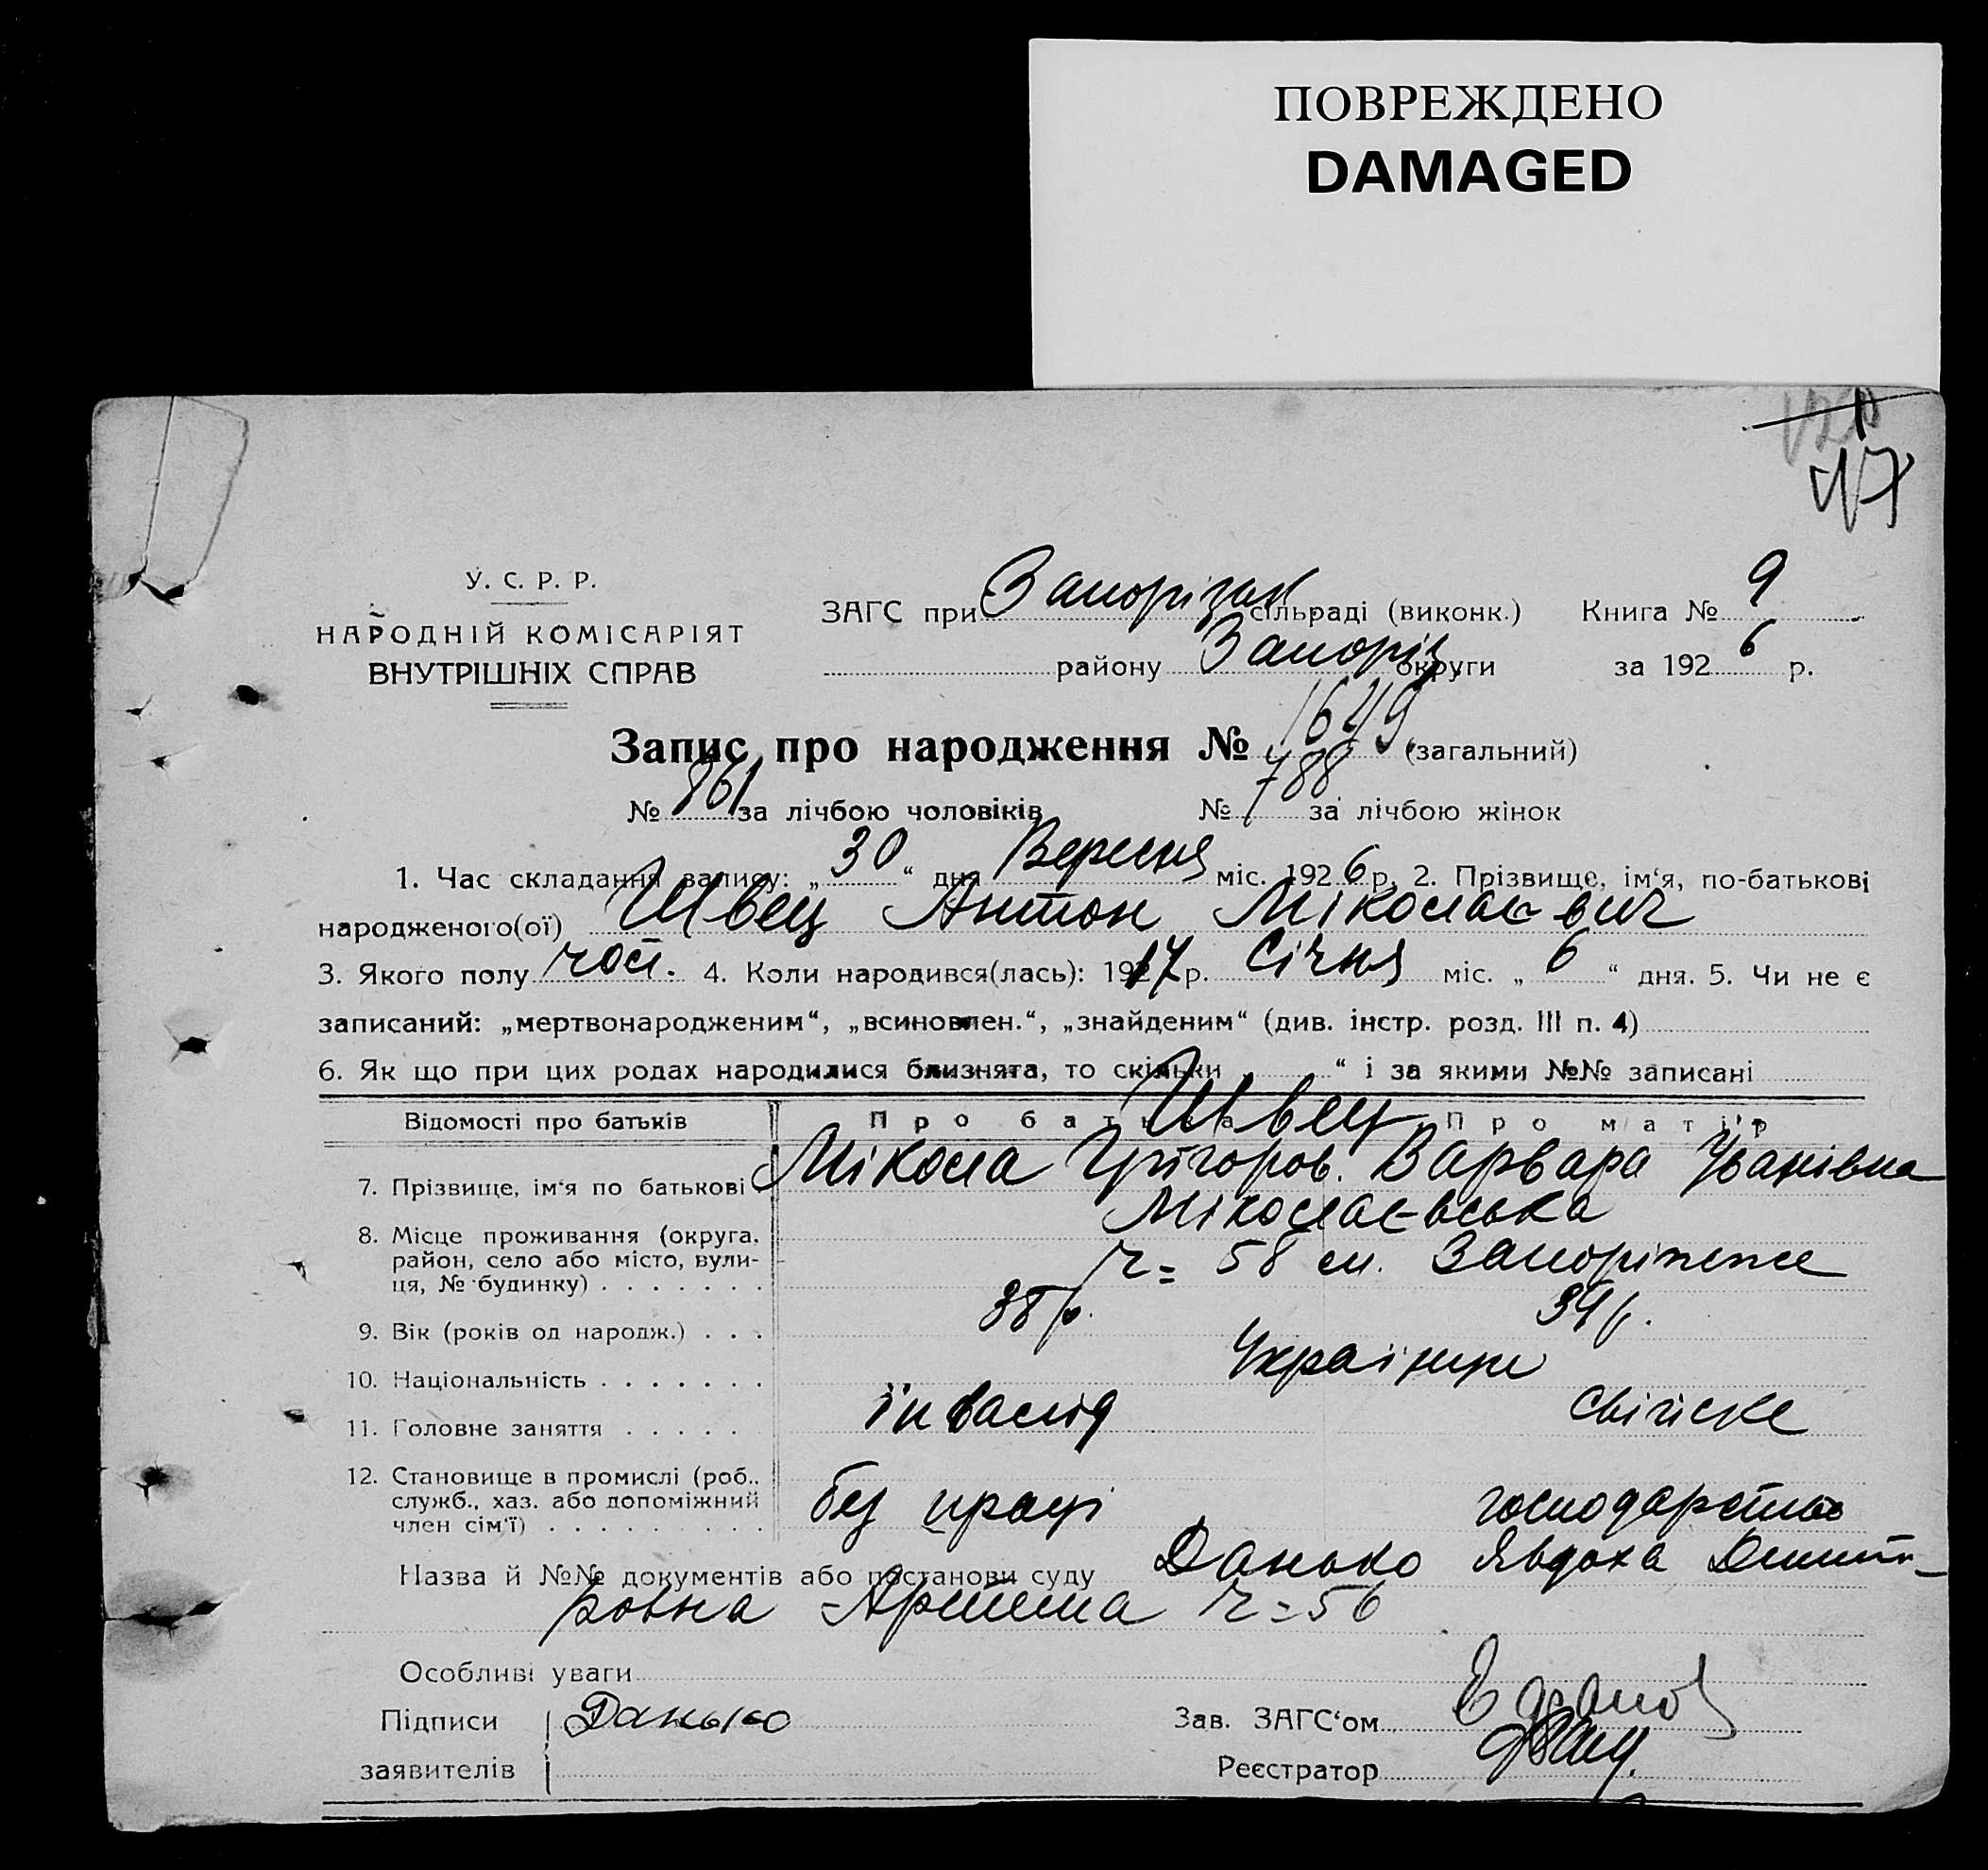 ПОВРЕЖДЕНО
DAMAGED
47
У. С. Р. Р.
НАРОДНІЙ КОМІСАРІЯТ
ВНУТРІШНІХ СПРАВ
ЗАГС при Запорізьк. сільраді (виконк.) Книга № 9
району Запоріз. округи за 1926 р.
Запис про народження № 1649 (загальний)
№ 861 за лічбою чоловіків № 788 за лічбою жінок
1. Час складання запису: „30“ дня Вересня міс. 1926 р. 2. Прізвище, ім‘я, по-батькові
народженого(ої) Швец Антон Міколаєвич
3. Якого полу чол. 4. Коли народився(лась): 1917 р. Січня міс. „6“ дня. 5. Чи не є
записаний: „мертвонародженим“, „всиновлен.“, „знайденим“ (див. інстр. розд. III п. 4)
6. Як що при цих родах народилися близнята, то скільки “ і за якими №№ записані
Швец
Відомості про батьків Про батька Про матір
7. Прізвище, ім‘я по батькові Мікола Грігоров. Варвара Іванівна
8. Місце проживання (округа, район, село або місто, вулиця, № будинку) Міколаєвська
ч= 58 м. Запоріжже
9. Вік (років од народж.) 38 р. 39 р.
10. Національність Українци
11. Головне заняття інвалід свійске
12. Становище в промислі (роб., служб., хаз. або допоміжний член сім‘ї) без праці господарство
Назва й №№ документів або постанови суду Данько Явдоха Дмит-
ровна Артема ч=56
Особливі уваги
Підписи Данько Зав. ЗАГС‘ом
заявителів Реєстратор